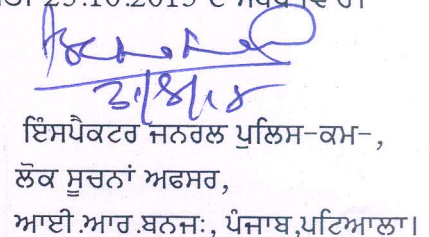 23.10.2013
ਇੰਸਪੈਕਟਰ ਜਨਰਲ ਪੁਲਿਸ-ਕਮ-,
ਲੋਕ ਸੂਚਨਾਂ ਅਫਸਰ,
ਆਈ.ਆਰ.ਬਨਜ:, ਪੰਜਾਬ,ਪਟਿਆਲਾ।